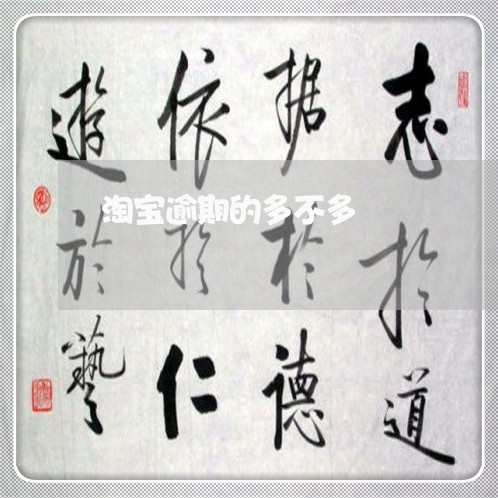 志於道
据於德
依於仁
遊於藝
淘宝逾期的多不多